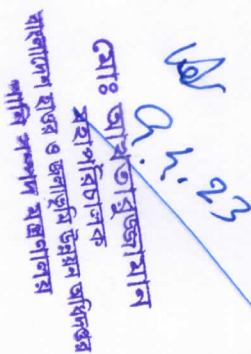 ৫.২.23
মোঃ আখতারুজ্জামান
মহাপরিচালক
বাংলাদেশ হাওর ও জলাভূমি উন্নয়ন অধিদপ্তর
পানি সম্পদ মন্ত্রণালয়